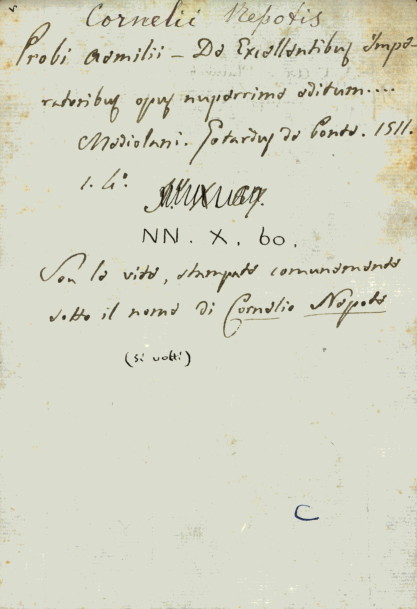 Cornelii Nepotis
Probi Aemilii - De Excellentibus Impe-
ratoribus opus nuperrime editum....
Mediolani. Gotardus de Ponte. 1511.
1. 4°.
NN. X. 60.
Son le vite, stampate comunemente
sotto il nome di Cornelio Nepote
(si volti)
C